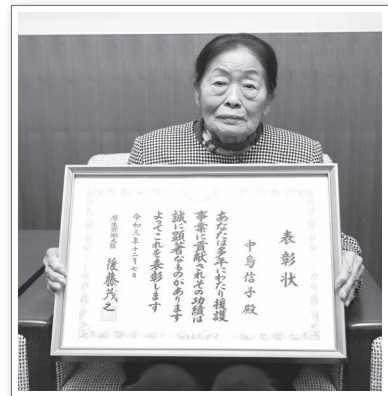 表彰状
中島信子殿
あなたは多年にわたり援護
事業に貢献されその功績は
誠に顕著なものがあります
よってこれを表彰します
令和三年十二月七日
厚生労働大臣 後藤茂之